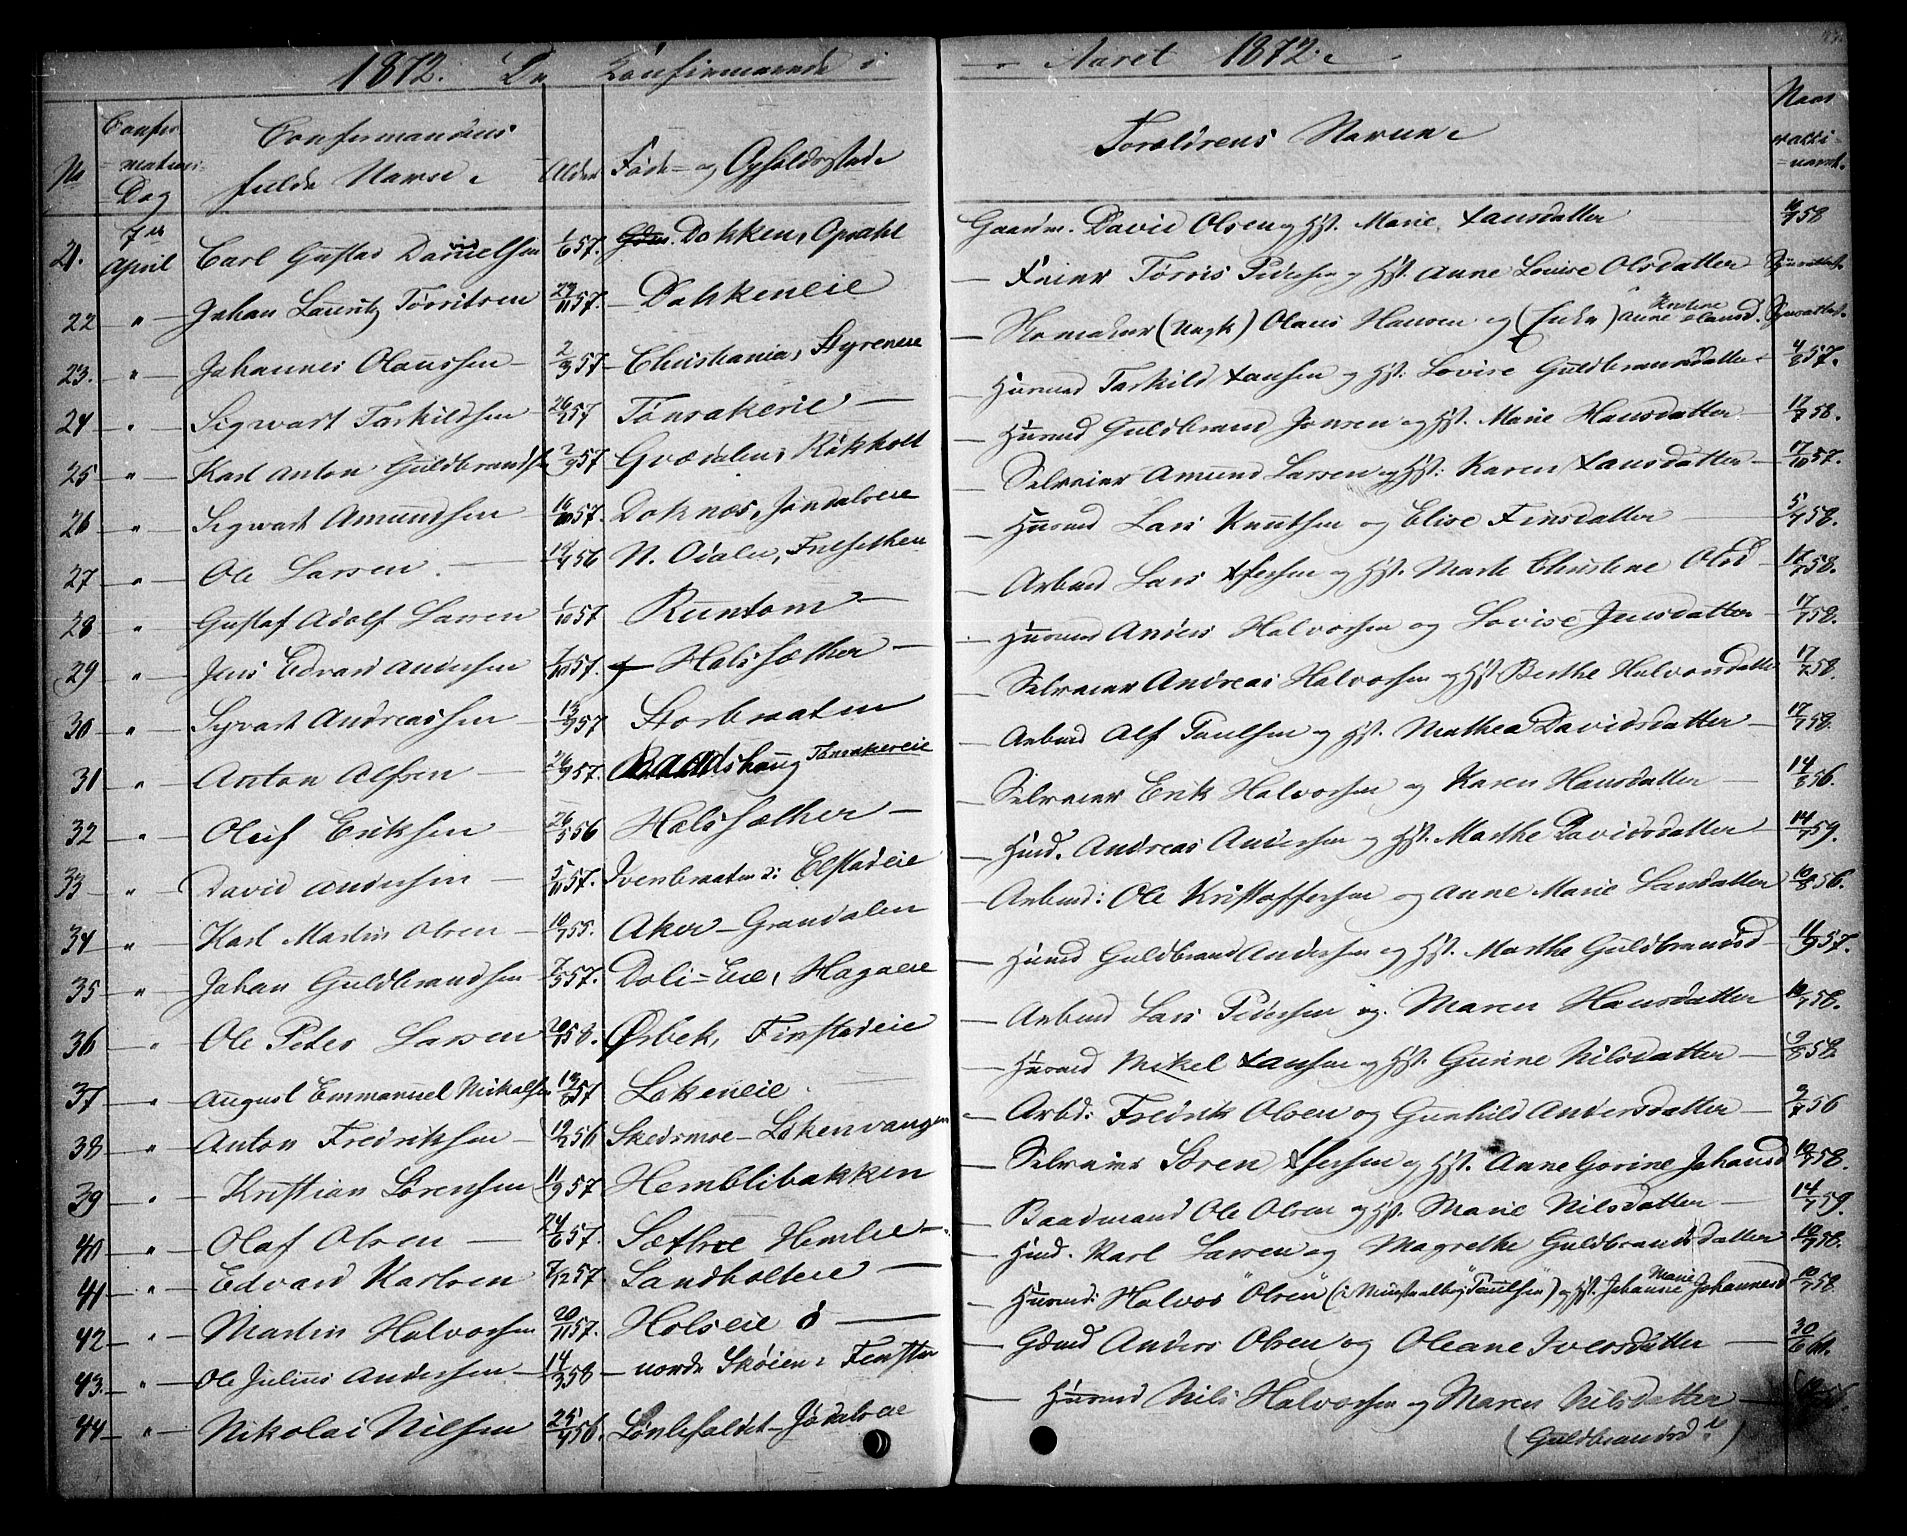 1872. De Konfirmerede i Aaret 1872.
No Confirmations Dag
Confirmandens fulde Navne. Alder Føde- og Opholdsstede Forældrens Navne Naar vakcineret.
21. 7de April Carl Gustav Davidsen 1/6 57. Dokken, Opsahl Gaardm. David Olsen og Hst. Marie Hansdatter 58
22 " Johan Lauritz Torvitsen 29/11 57. Dokkeneie Feier Torvis Pedersen og Hst. Anne Lovise Olsdatter
23. " Johannes Olaussen 2/3 57 Christiania, Styreneie Skomaker (Ungk) Olaus Hansen og (Enke) Anne Hansd.
24 " Sigwart Taskildsen 26/ 57 Tonsakerie Husmd Taskild Hansen og Hst. Lovise Guldbrandsdatter 4/8 57.
25 " Karl Anton Guldbrandsen 2/9 57 Gvædalen, Røkholt Husmd Guldbrand Jonsen og Hst. Marie Hansdatter 17/7 58.
26 " Sigwart Amundsen 16/10 57. Doknæs, Jøndaleie Selveier Amund Larsen og Hst. Karen Hansdatter 17/10 57.
27 " Ole Larsen 56 N. Odalen, Fulsethen Husmd Lars Knutsen og Elise Finsdatter 5/7 58.
28 " Gustaf Adolf Larsen 1/10 57 Runtom Arbmd Lars og Hst. Marte Christine Olsd 58.
29 " Jens Edvard Andersen 7/10 57. Halssæther Husmd Anders Halvorsen og Lovise Jensdatter 17/7 58.
30 " Sigvart Andreassen 13/9 57 Storbraaten Selveier Andreas Halvorsen og Hst Berthe Halvorsdatter 17/7 58.
31 " Anton Alfsen 26/9 57. Tonsakereie Arbmd Alf Paulsen og Hst. Mathea Davidsdatter 17/7 58.
32 " Oluf Eriksen 26/5 56 Halssæther Selveier Erik Halvorsen og Karen Hansdatter 14/8 56.
33 " David Andersen 5/11 57. Iversbraaten i Elstadeie Hmd. Andreas Andersen og Hst. Marthe Davidsdatter 14/7 59.
34 " Karl Martin Olsen 19/7 55. Aker - Grandalen Arbmd: Ole Kristoffersen og Anne Marie Larsdatter 10/8 56.
35 " Johan Guldbrandsen 7/5 57. Doli-Eie, Hagaeie Husmd Guldbrand Andersen og Hst. Marthe Guldbrandsd 11/9 57.
36 " Ole Peter Larsen 20/ 58. Ørbek, Finstadeie Arbmd Lars Pedersen og Maren Hansdatter 58.
37 " August Emmanuel Mikalsen 13/8 57 Løkeneie Husmd Mikel Hansen og Hst. Gunne Nilsdatter 9/8 58
38 " Anton Fredriksen 19/2 56 Skedsmoe - Løkenvangen Arbd: Fredrik Olsen og Gunhild Andersdatter 56
39 " Kristian Sørensen 11/9 57 Hemblibakken Selveier Søren og Hst. Anne Gorine Johansd 10/7 58.
40 " Olaf Olsen 24/6 57. Sæthre Hemlie Baadmand Ole Olsen og Hst. Marie Nilsdatter 14/7 59.
41 " Edvard Karlsen 7/12 57. Sandholteie Hmd. Karl Larsen og Magrethe Guldbrandsdatter 10/7 58.
42 " Martin Halvorsen 20/11 57. Holseie Husmd: Halvor "Olsen" (i Ministerialbog "Paulsen") og Hst. Johanne Marie Johannesd 10/7 58
43. " Ole Julius Andersen 14/3 58 nordre Skøien i Gdmd Anders Olsen og Oleane Iversdatter 30/6 61.
44 " Nikolai Nilsen 25/ 56. Lønlifaldet - Jødaleie Husmd Nils Halvorsen og Maren Nilsdatter
(Guldbrandsd?)